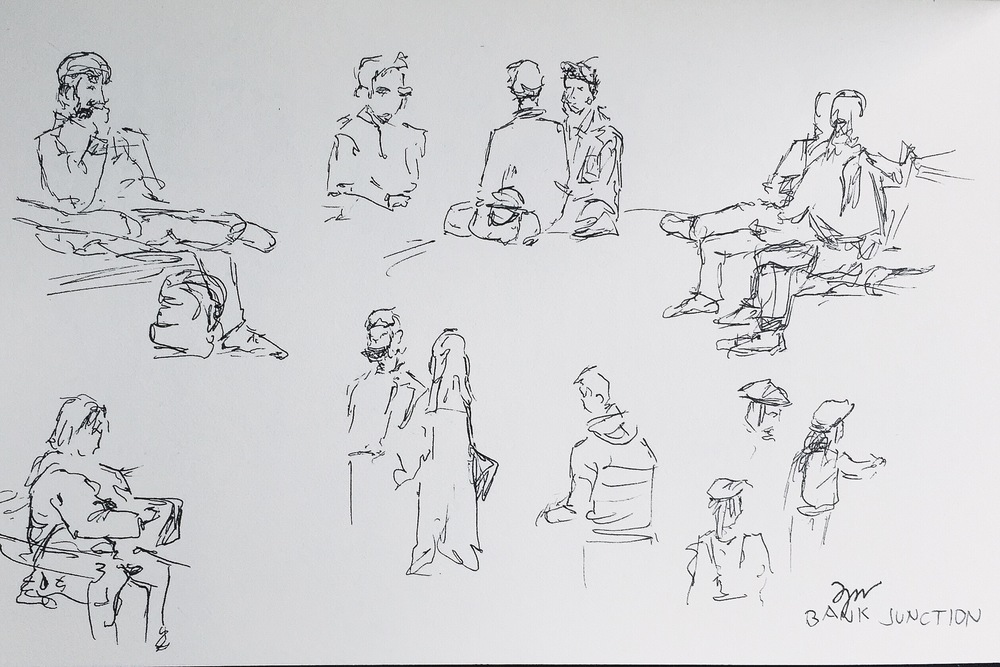 BANK JUNCTION